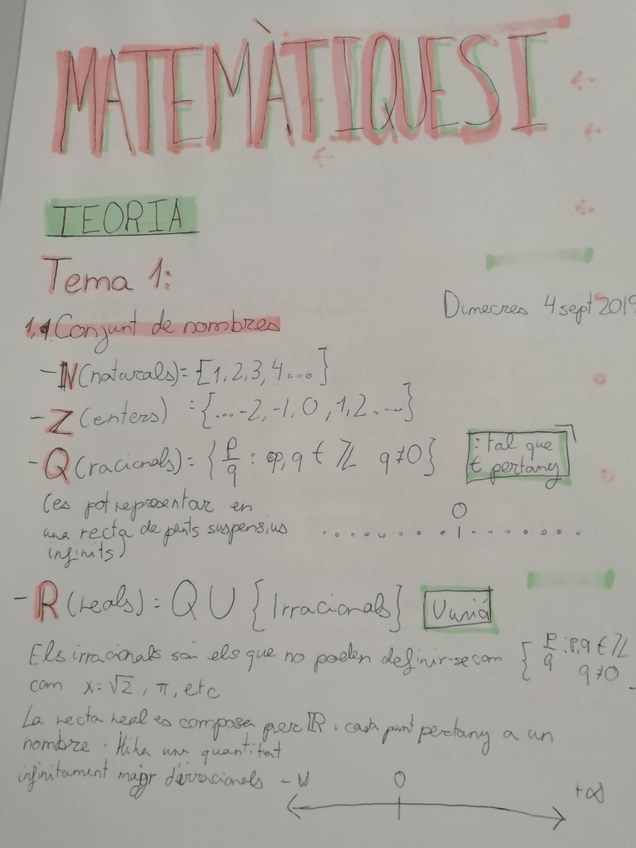 MATEMÀTIQUES I
TEORIA
Tema 1:
Dimecres 4 sept 2019
1.1 Conjunt de nombres
- N (naturals) = [1, 2, 3, 4 ... ]
- Z (enters) = {... -2, -1, 0, 1, 2 ... }
- Q (racionals) = { p/q : p, q ∈ ℤ q ≠ 0 }
: tal que
∈ pertany
(es pot representar en
una recta de punts suspensius
infinits)
0
- R (reals) = Q U { Irracionals }
Unió
Els irracionals són els que no poden definir-se com { p/q : p, q ∈ ℤ
q ≠ 0
com x = √2, π, etc
La recta real es composa per ℝ i cada punt pertany a un
nombre. Hi ha una quantitat
infinitament major d'irracionals
0
+∞